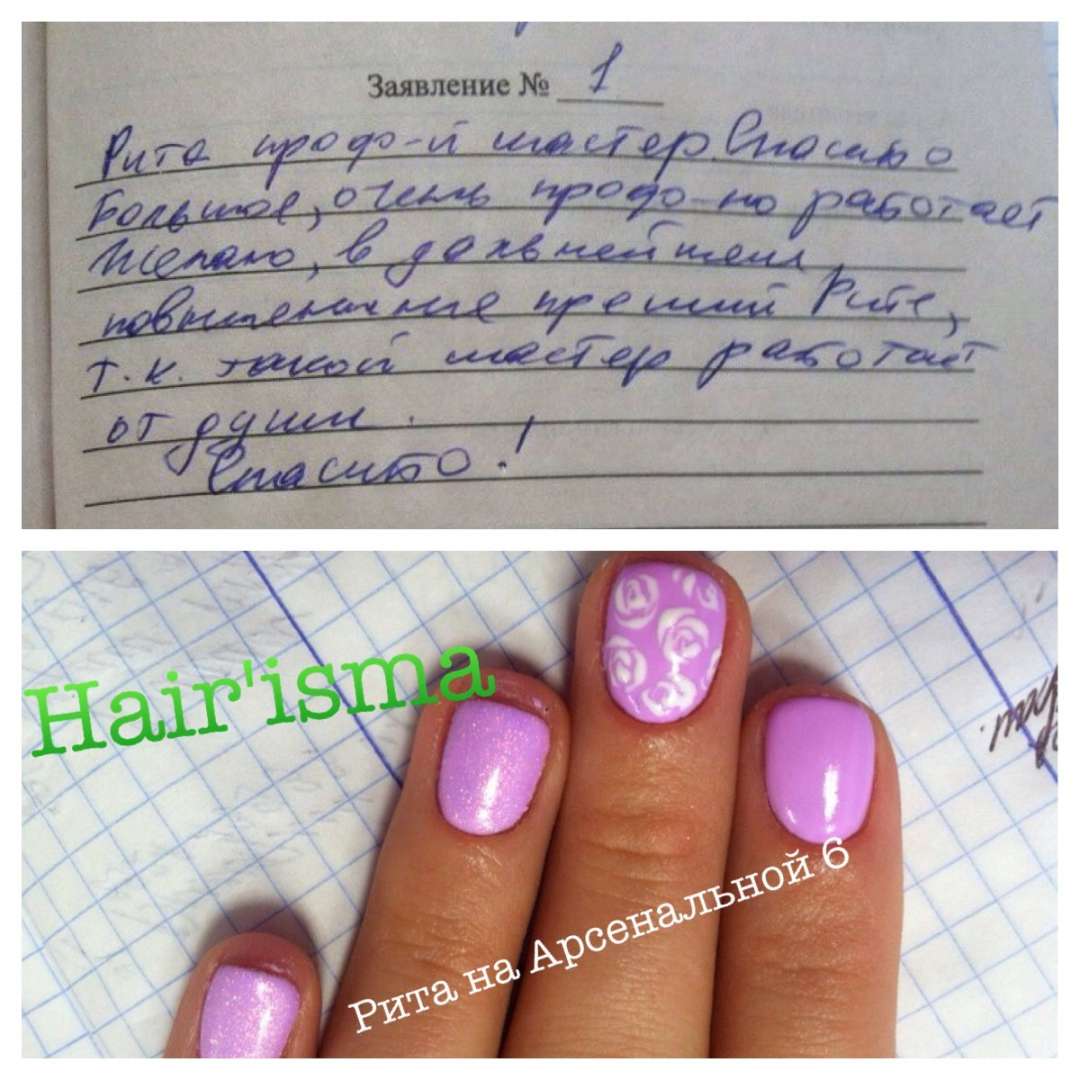 Заявление № 1
Рита проф-й мастер. Спасибо
большое, очень профо-но работает
Желаю, в дальнейшем
повышенные премий Рите,
т.к. такой мастер работает
от души.
Спасибо!
Hair'isma
Рита на Арсенальной 6